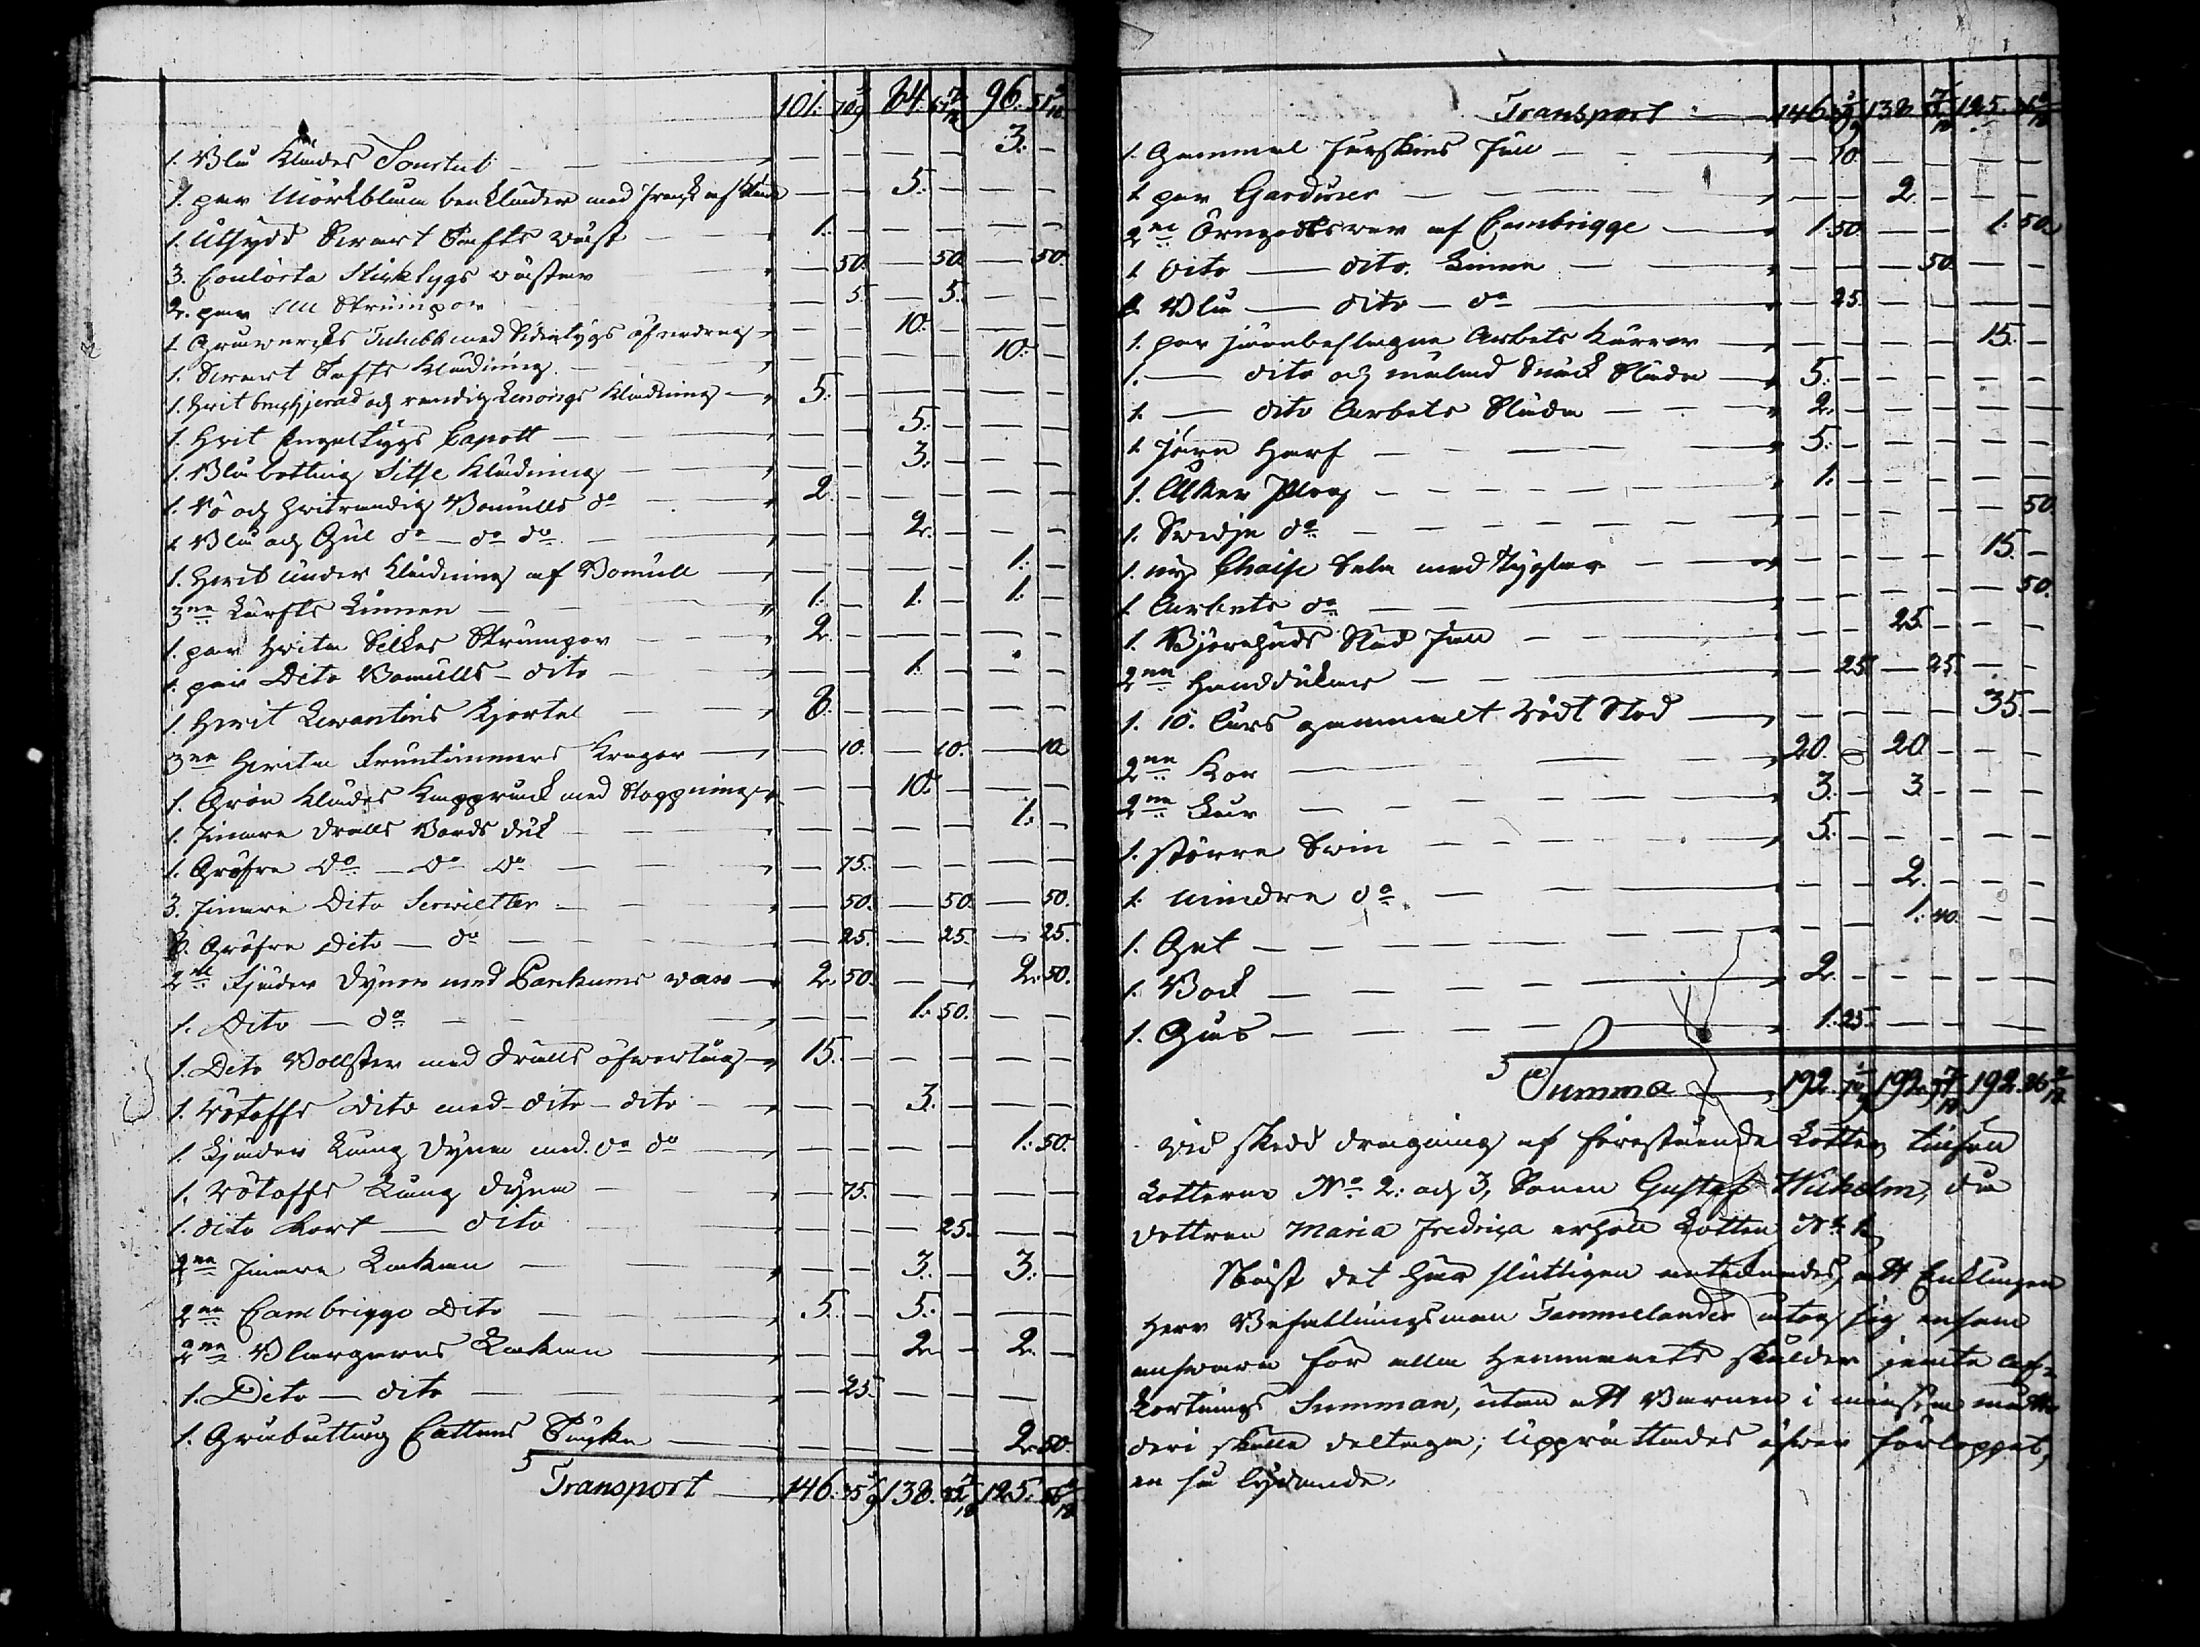 101. 84. 96.
1. Blå Klädes Sourtut — 3.
1. par Mörkblåa benkläder med frack af Kläde — 5.
1. Utsydd Svart Tafts väst — 1.
3. Coulörta Sticktygs västar — 50. — 50. — 50.
2. par Ull Strumpor — 5. — 5.
1. Gråwerks med Sidentygs öfverdrag — 10.
1. Svart Tafts Kládning — 10.
1. Hvit och randig Klädning — 5.
1. Hvit Engeltygs Capott — 5.
1. Blåbottnig Sitse Klädning — 3.
1. Rö och hvitrandig Bomulls do — 2.
1. Blå och Gul do — do do — 2.
1. Hvit under Klädning af Bomull — 1.
3ne Lärfts Linnen — 1. — 1. — 1.
1. par Hvita Silkes Strumpor — 2.
1. par Dito Bomulls — dito — 1.
1. Hvit Levantins Kjortel — 8.
3ne Hvita Fruntimmers Kragar — 10. — 10. — 10.
1. Grön Klädes Kapprock med Stoppning — 10.
1. Finare Dralls Bords duk — 1.
1. Gröfre do — do do — 75.
3. Finare Dito Servietter — 50. — 50. — 50.
6. Gröfre Dito — do — 25. — 25. — 25.
2ne Fjäder Dynor med Parkums var — 2. 50. — 2. 50.
1. Dito — do — 1. 50.
1. Dito Bolster med Dralls öfvertåg — 15.
1. Rötoffs dito med dito — dito — 3.
1. Fjäder Lång Dyna med do do — 1. 50.
1. Rötoffs Lång dyna — 75.
1. dito kort — dito — 25.
2ne Finare Lakan — 3. — 3.
2ne Cambriggs Dito — 5. — 5.
2ne Blårgarns Lakan — 2. — 2.
1. Dito — dito — 25.
1. Gråbottnig Cattuns Täcke — 2. 50.
Transport — 146. 138. 125.
Transport — 146. 138. 125.
1. Gammal Fårskins Fäll — 10.
1. par Gardiner — 2.
2ne Örngottsvar af Cambrigge — 1. 50. — 1. 50.
1. Dito — dito. Linne — 50.
1. Blå — dito — do — 25.
1. par järnbeslagne Arbets Kärror — 15.
1. — dito och målad Släda — 5.
1. — dito Arbets Släda — 2.
1. Järn Harf — 5.
1. Åker Plog — 1.
1. Svedje do — 50.
1. ny Chaise Sela med Tyglar — 15.
1. Arbets do — 50.
1. Björnhuds Släd Fäll — 25.
2ne Handdukar — 25. — 25.
1. 10. års gammalt rödt Stod — 35.
2ne Kor — 20. — 20.
2ne Får — 3. — 3.
1. större Svin — 5.
1. mindre do — 2.
1. Get — 1. 40.
1. Bock — 2.
1. Gås — 1. 25.
Summa — 192. 192. 192.
Vid skedd dragning af förestående Lotter, tillföll
Lotterne No 2: och 3, Sonen Gustaf Wilhelm, då
dottren Maria Fredrica erhöll Lotten No 1.
Näst det här slutligen antecknades, att Enklingen
Herr Befallningsman Tammelander åtog sig ensam
ansvara för alla Hemmanets skulder jemte Af-
kortnings Summan, utan att Barnen i minsta mått
deri skulle deltaga; Upprättades öfver förloppet,
en så lydande: